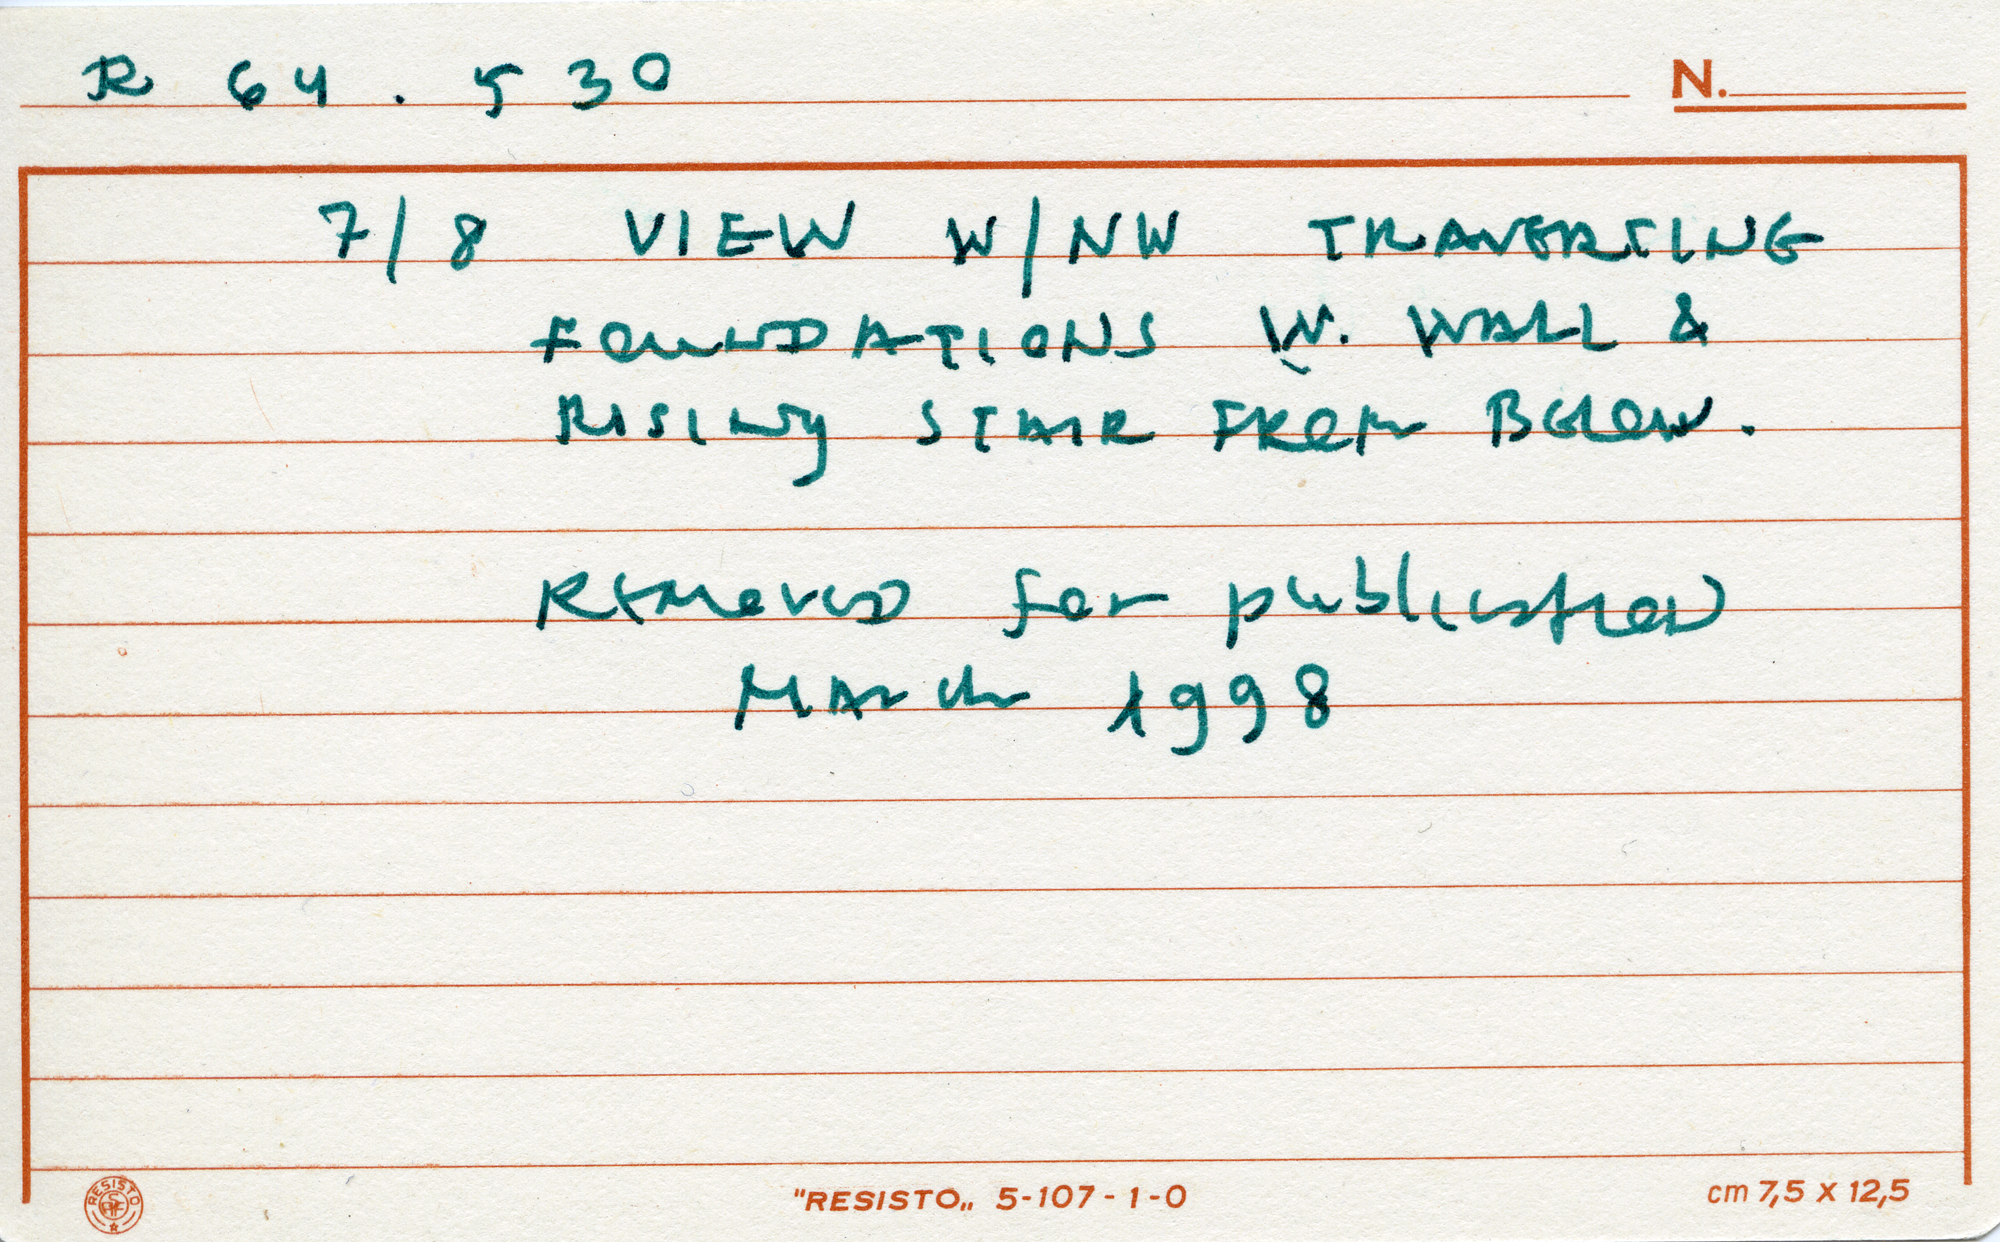 R 64.530
N.
7/8 VIEW W/NW TRAVERTINE
FOUNDATIONS W. WALL &
RISING STAIR FROM BELOW.
Removed for publication
March 1998
RESISTO
"RESISTO„ 5-107-1-0
cm 7,5 x 12,5